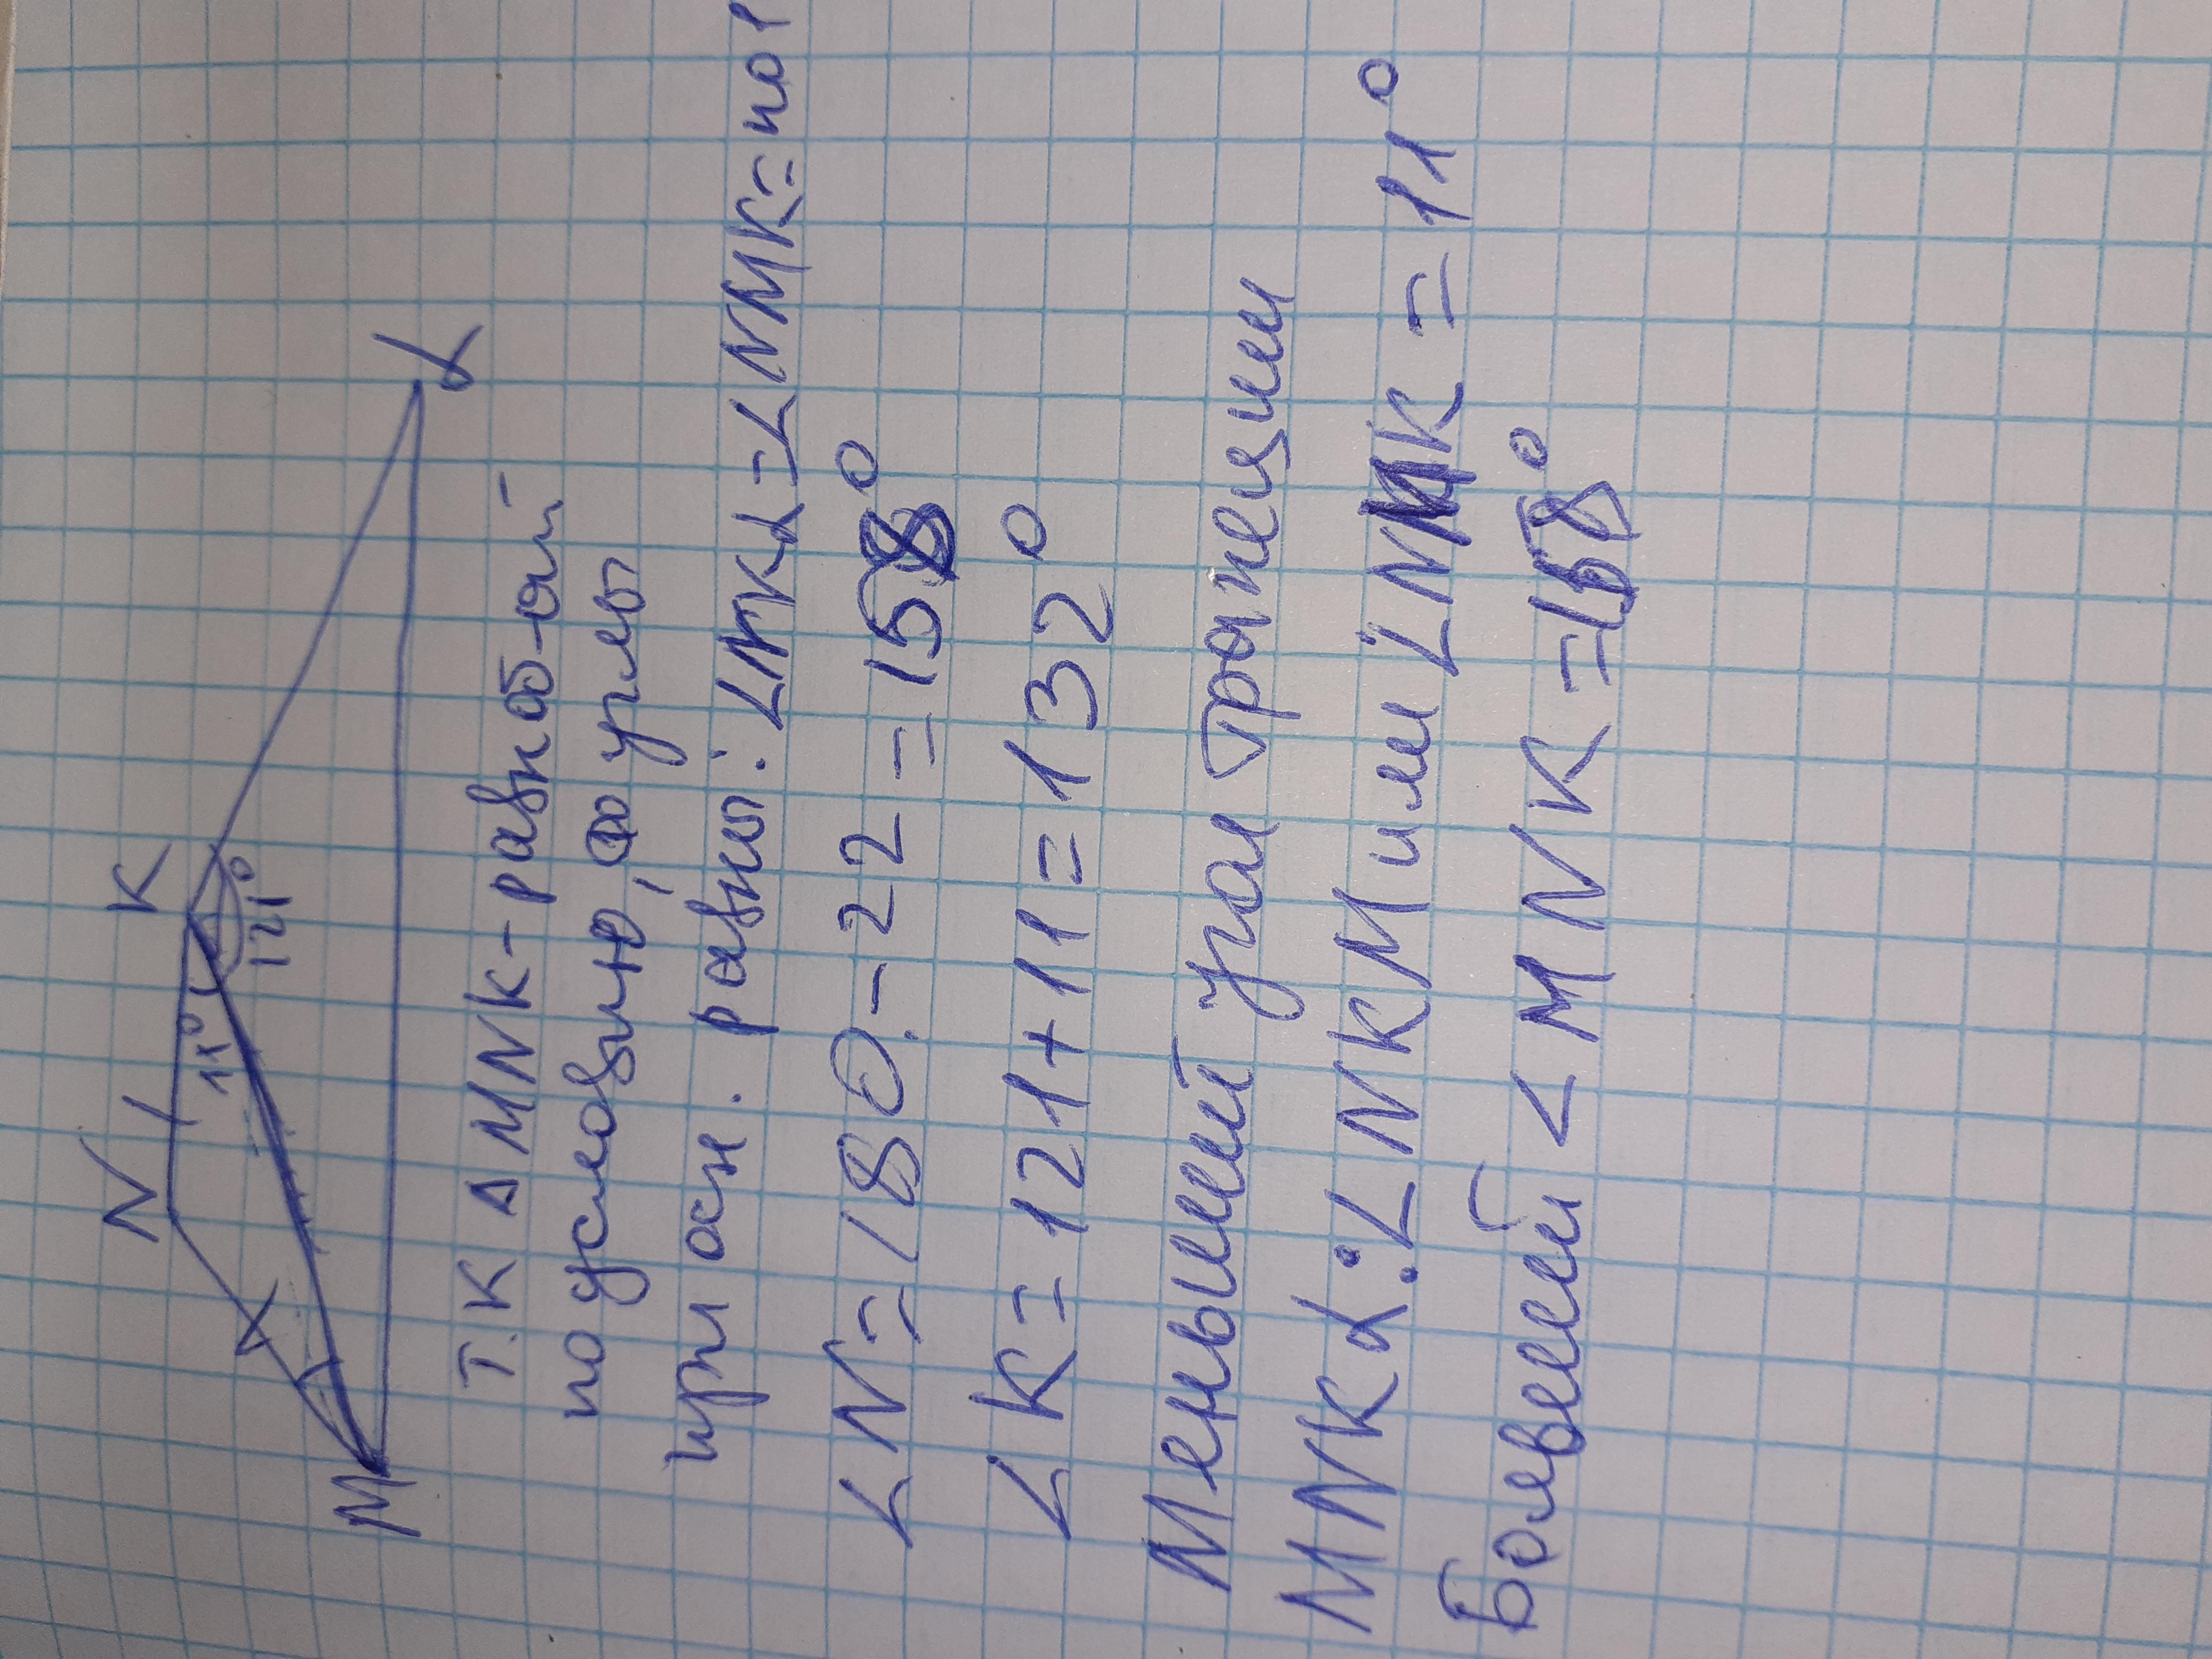 N K
11° 121°
M L
Т.К Δ MNK - равноб-ый
по условию, то углы
при осн. равны: ∠NKL = ∠NMK = по 1
∠N = 180 - 22 = 158°
∠K = 121 + 11 = 132°
Меньший угол трапеции
MNKL: ∠NKM или ∠NMK = 11°
Больший ∠MNK = 158°